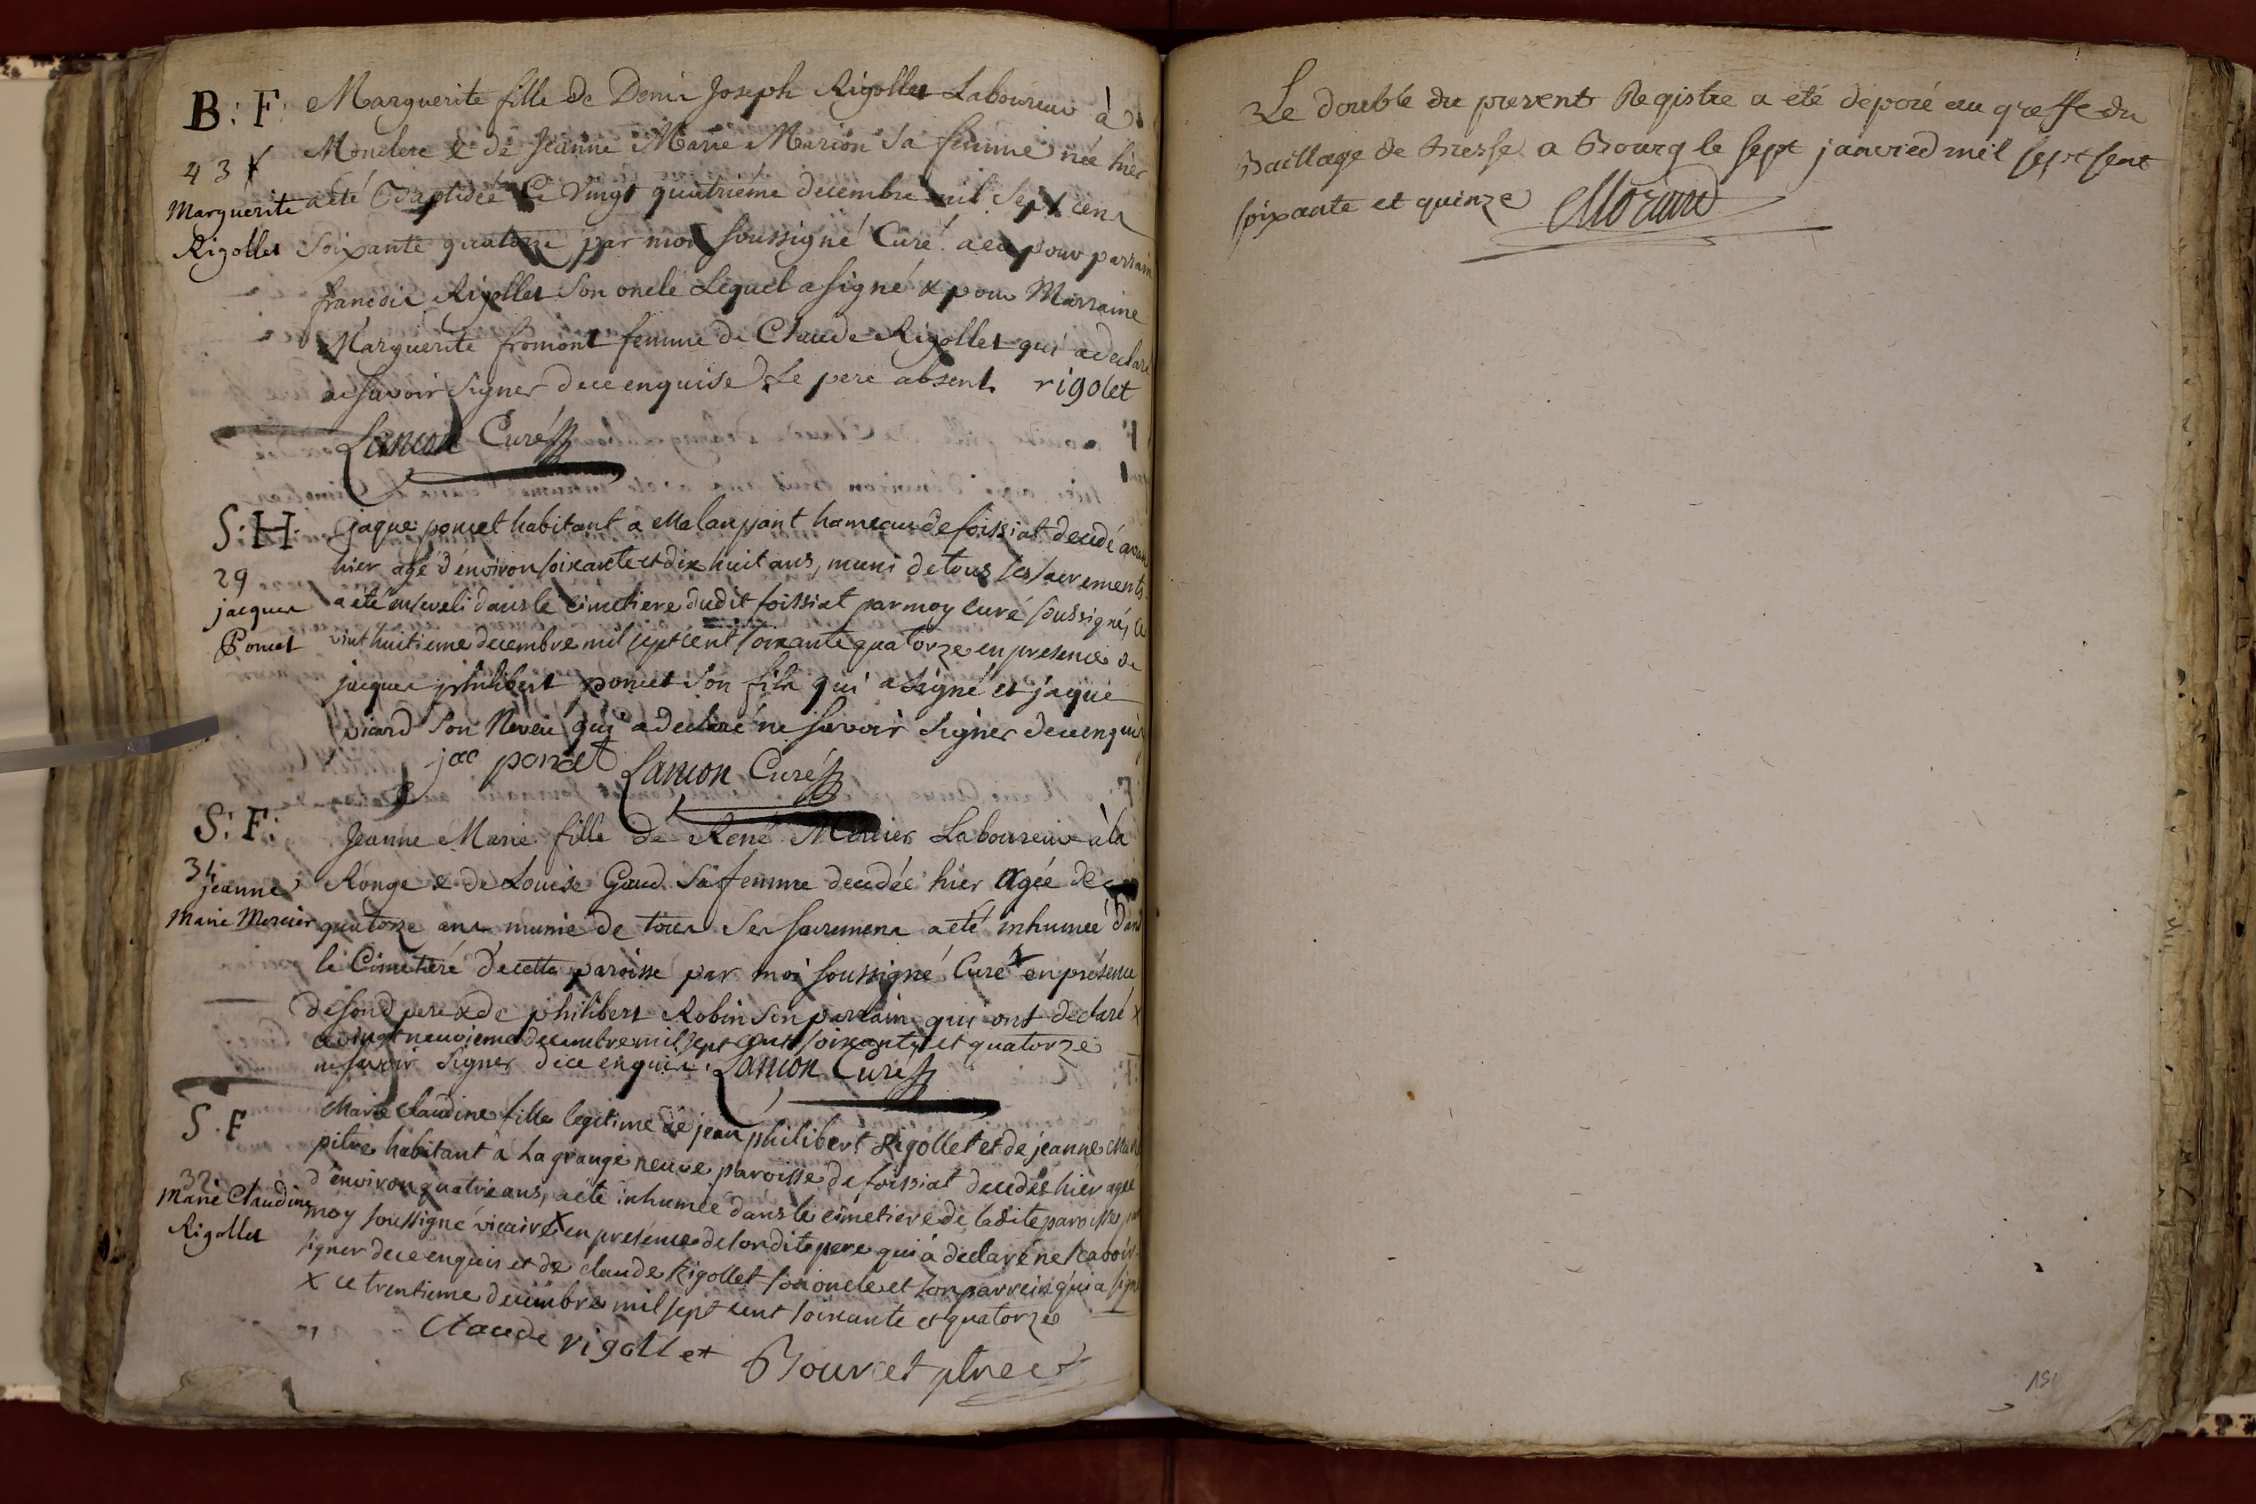 B: F:
43
Marguerite
Rigollet
Marguerite fille de Denis Joseph Rigollet Laboureur à
Monclere & de Jeanne Marie Marion sa femme née hier
a été Baptisée ce vingt quatrieme decembre mil sept cens
soixante quatorze par moi soussigné Curé. a eu pour parrain
francois Rigollet son oncle Lequel a signé & pour Marraine
Marguerite fromont femme de Claude Rigollet qui a declaré
ne savoir signer de ce enquise Le pere absent. rigolet
Lancon Curé
S: H:
29
jacques
Poncet
jaque poncet habitant a Malaupant hameau de foissiat decedé avant
hier agé d'environ soixante et dix huit ans, muni de tous ses sacrements
a été enseveli dans le cimetiere dudit foissiat par moy curé soussigné, ce
vint huitieme decembre mil sept cent soixante quatorze en presence de
jacques philibert poncet son fils qui a signé et jaque
vicard son Neveu qui a declaré ne savoir signer de ce enquis
jac poncet Lancon Curé
S: F:
31
jeanne
Marie Mercier
Jeanne Marie fille de René Mercier Laboureur à la
Ronge & de Louise Gaud sa femme decedée hier agée de
quatorze ans munie de tous ses sacremens a été inhumée dans
le Cimetiere de cette paroisse par moi soussigné Curé x en présence
de sond pere & de philibert Robin son parrain qui ont declaré x
ce vingt neuvieme decembre mil sept cent soixante et quatorze
ne savoir signer de ce enquis. Lancon Curé
S. F
32
Marie Claudine
Rigollet
Marie claudine fille legitime de jean philibert Rigollet et de jeanne Marie
pitre habitant à La grange neuve paroisse de foissiat decedée hier agée
d'environ quatre ans, a été inhumée dans le cimetiere de ladite paroisse par
moy soussigné vicaire x en presence de son dit pere qui à declaré ne scavoir
signer de ce enquis et de claude Rigollet son oncle et son parrein qui a signé
x ce trentieme decembre mil sept cent soixante et quatorze
Claude rigollet Bourcet ptre
Le double du present Registre a eté deposé au greffe du
Baillage de Bresse a Bourg le sept janvied mil sept sent
soixante et quinze Morand